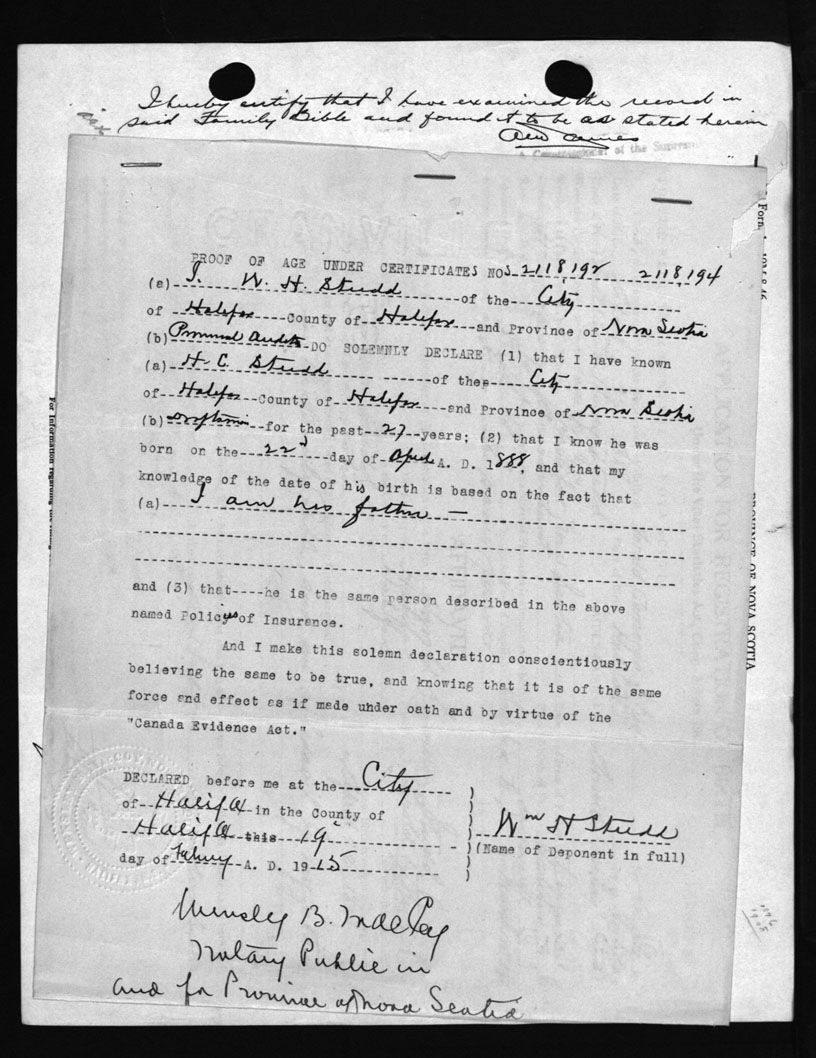 I hereby certify that I have examined the record in
said Family Bible and found it to be as stated herein
A Commissioner of the Supreme
PROOF OF AGE UNDER CERTIFICATES NOS 2118192 2118194
(a) I. W. H. Studd of the City
of Halifax County of Halifax and Province of Nova Scotia
(b) Provincial Auditor DO SOLEMNLY DECLARE (1) that I have known
(a) H. C. Studd of the City
of Halifax County of Halifax and Province of Nova Scotia
(b) Draftsman for the past 27 years; (2) that I know he was
born on the 22d day of April A. D. 1888, and that my
knowledge of the date of his birth is based on the fact that
(a) I am his father —
and (3) that----he is the same person described in the above
named Policies of Insurance.
And I make this solemn declaration conscientiously
believing the same to be true, and knowing that it is of the same
force and effect as if made under oath and by virtue of the
"Canada Evidence Act."
DECLARED before me at the City
of Halifax in the County of
Halifax this 19
day of A. D. 1915
Wm H Studd
(Name of Deponent in full)
B.
Notary Public in
and for Province of Nova Scotia
For Information regarding
Form
PROVINCE OF NOVA SCOTIA